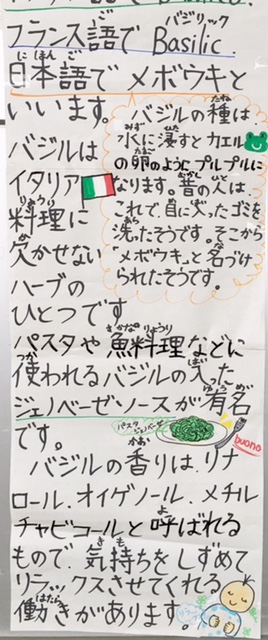 フランス語で Basilic.
日本語で メボウキと
いいます。
バジルは
イタリア
料理に
欠かせない
ハーブの
ひとつです
バジルの種は
水に浸すとカエル
の卵のようにプルプルに
なります。昔の人は、
これで、目に入ったゴミを
洗ったそうです。そこから
「メボウキ」と名づけ
られたそうです。
パスタや魚料理などに
使われるバジルの入った
ジェノベーゼソースが有名
です。
パスタ ジェノベーゼ
buono
バジルの香りは、リナ
ロール、オイゲノール、メチル
チャビコールと呼ばれる
もので、気持ちをしずめて
リラックスさせてくれる
働きがあります。